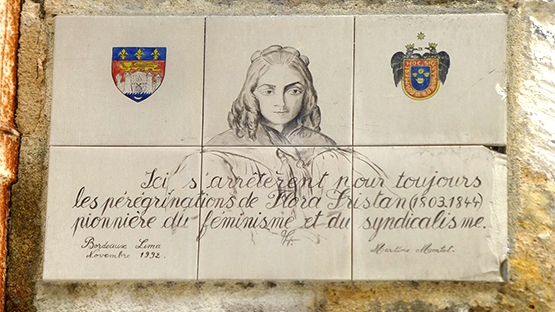 Ici s'arrêtèrent pour toujours
les pérégrinations de Flora Tristan (1803.1844)
pionnière du féminisme et du syndicalisme.
Bordeaux Lima
Novembre 1992.